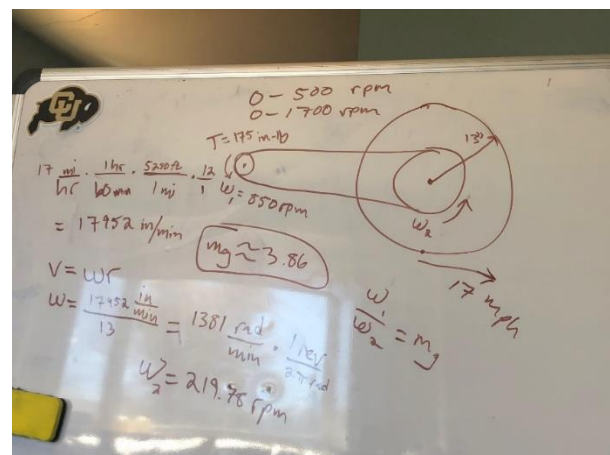 CU
0 - 500 rpm
0 - 1700 rpm
T = 175 in-lb
13"
17 mi/hr · 1hr/60min · 5280ft/1mi · 12/1
ω₁ = 850 rpm
= 17952 in/min
mg ≈ 3.86
ω₂
17 mph
V = ωr
ω = 17952 in/min / 13 = 1381 rad/min · 1 rev/2π rad
ω₁/ω₂ = mg
ω₂ = 219.78 rpm